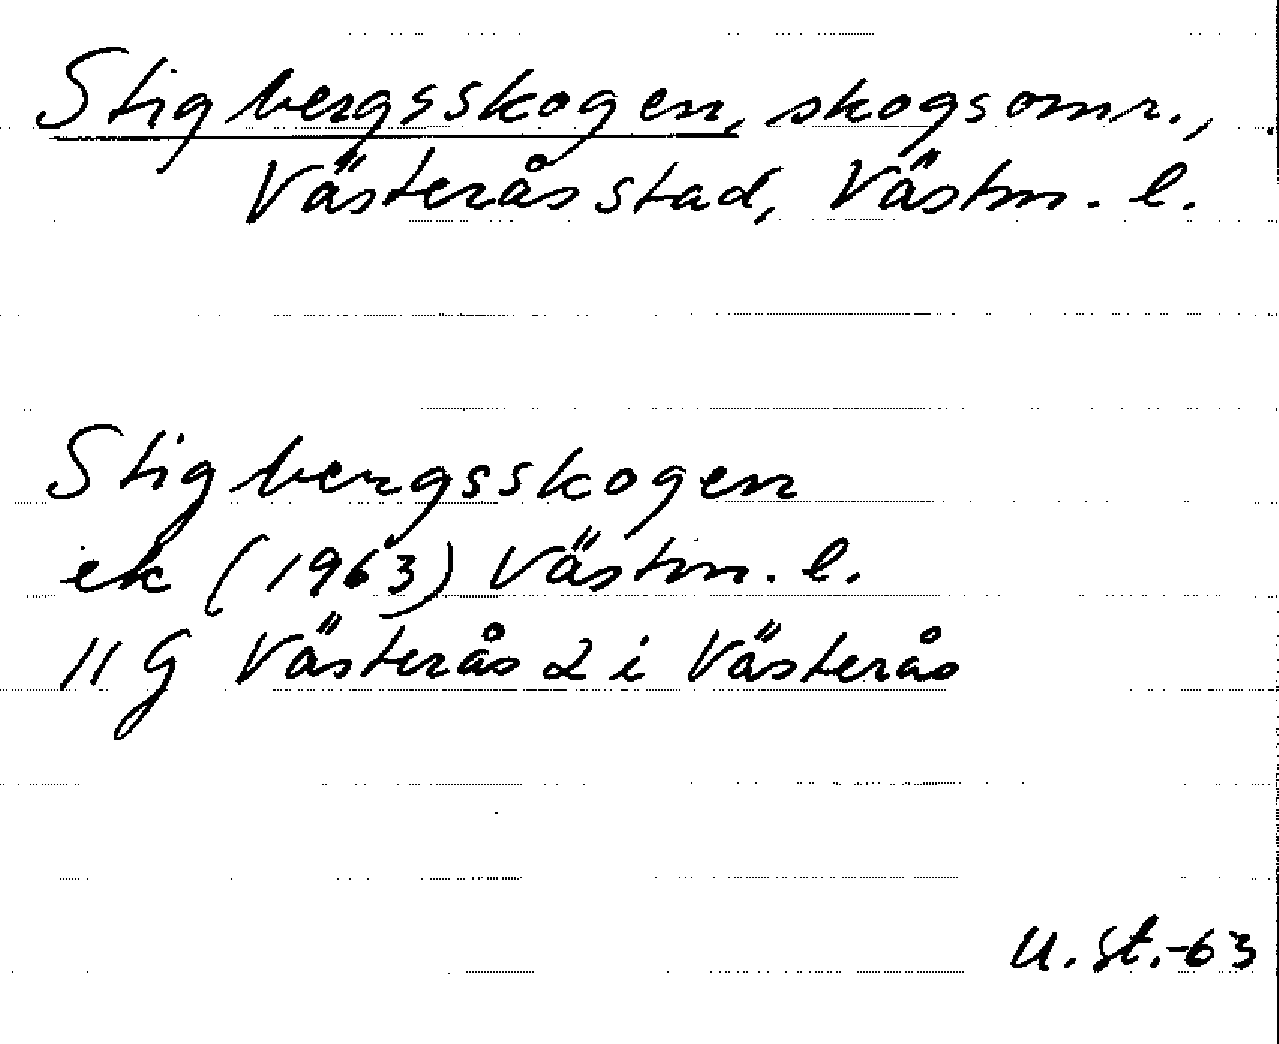 Stigbergsskogen, skogsomr.,
Västerås stad, Västm. l.
Stigbergsskogen
ek (1963) Västm. l.
11 G Västerås 2 i Västerås
U. St. -63